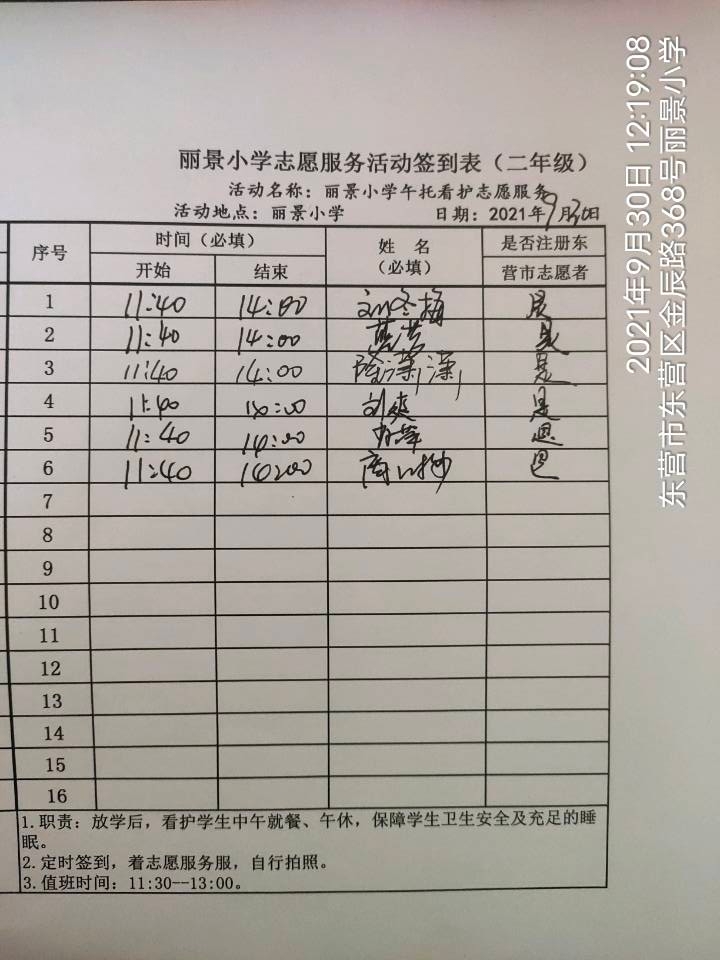 丽景小学志愿服务活动签到表（二年级）
活动名称：丽景小学午托看护志愿服务
活动地点：丽景小学 日期：2021年9月30日
序号 时间（必填） 姓名（必填） 是否注册东营市志愿者
开始 结束
1 11:40 14:00 刘冬梅 是
2 11:40 14:00 是
3 11:40 14:00 是
4 11:40 刘爽 是
5 11:40 14:00 是
6 11:40 是
7
8
9
10
11
12
13
14
15
16
1.职责：放学后，看护学生中午就餐、午休，保障学生卫生安全及充足的睡
眠。
2.定时签到，着志愿服务服，自行拍照。
3.值班时间：11:30--13:00。
2021年9月30日 12:19:08
东营市东营区金辰路368号丽景小学